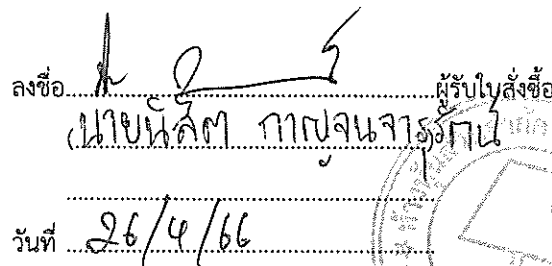 ลงชื่อ ผู้รับใบสั่งซื้อ
(นายนิสิต กาญจนจารุรัตน์
วันที่ 26/4/66